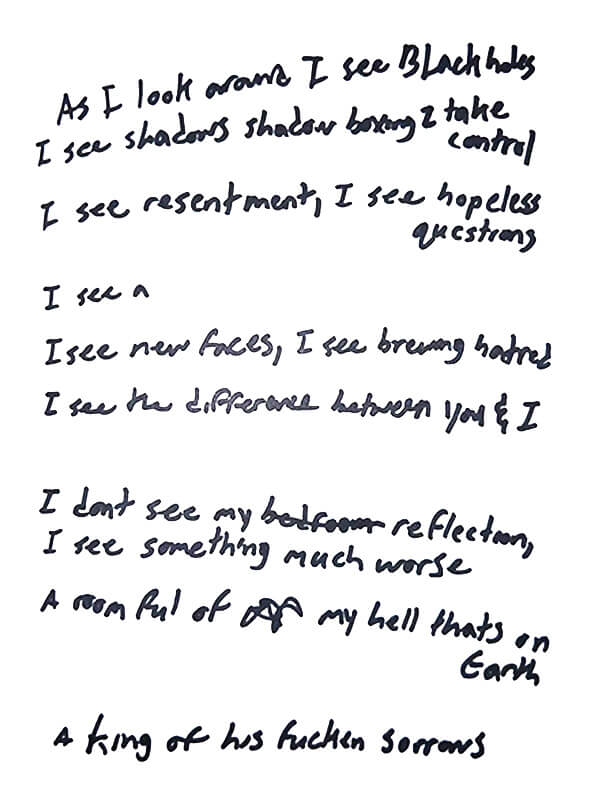 As I look around I see Black holes
I see shadows shadow boxing 2 take
control
I see resentment, I see hopeless
questions
I see a
I see new faces, I see brewing hatred
I see the difference between you & I
I dont see my bedroom reflection,
I see something much worse
A room ful of my hell thats on
Earth
A king of his fucken sorrows